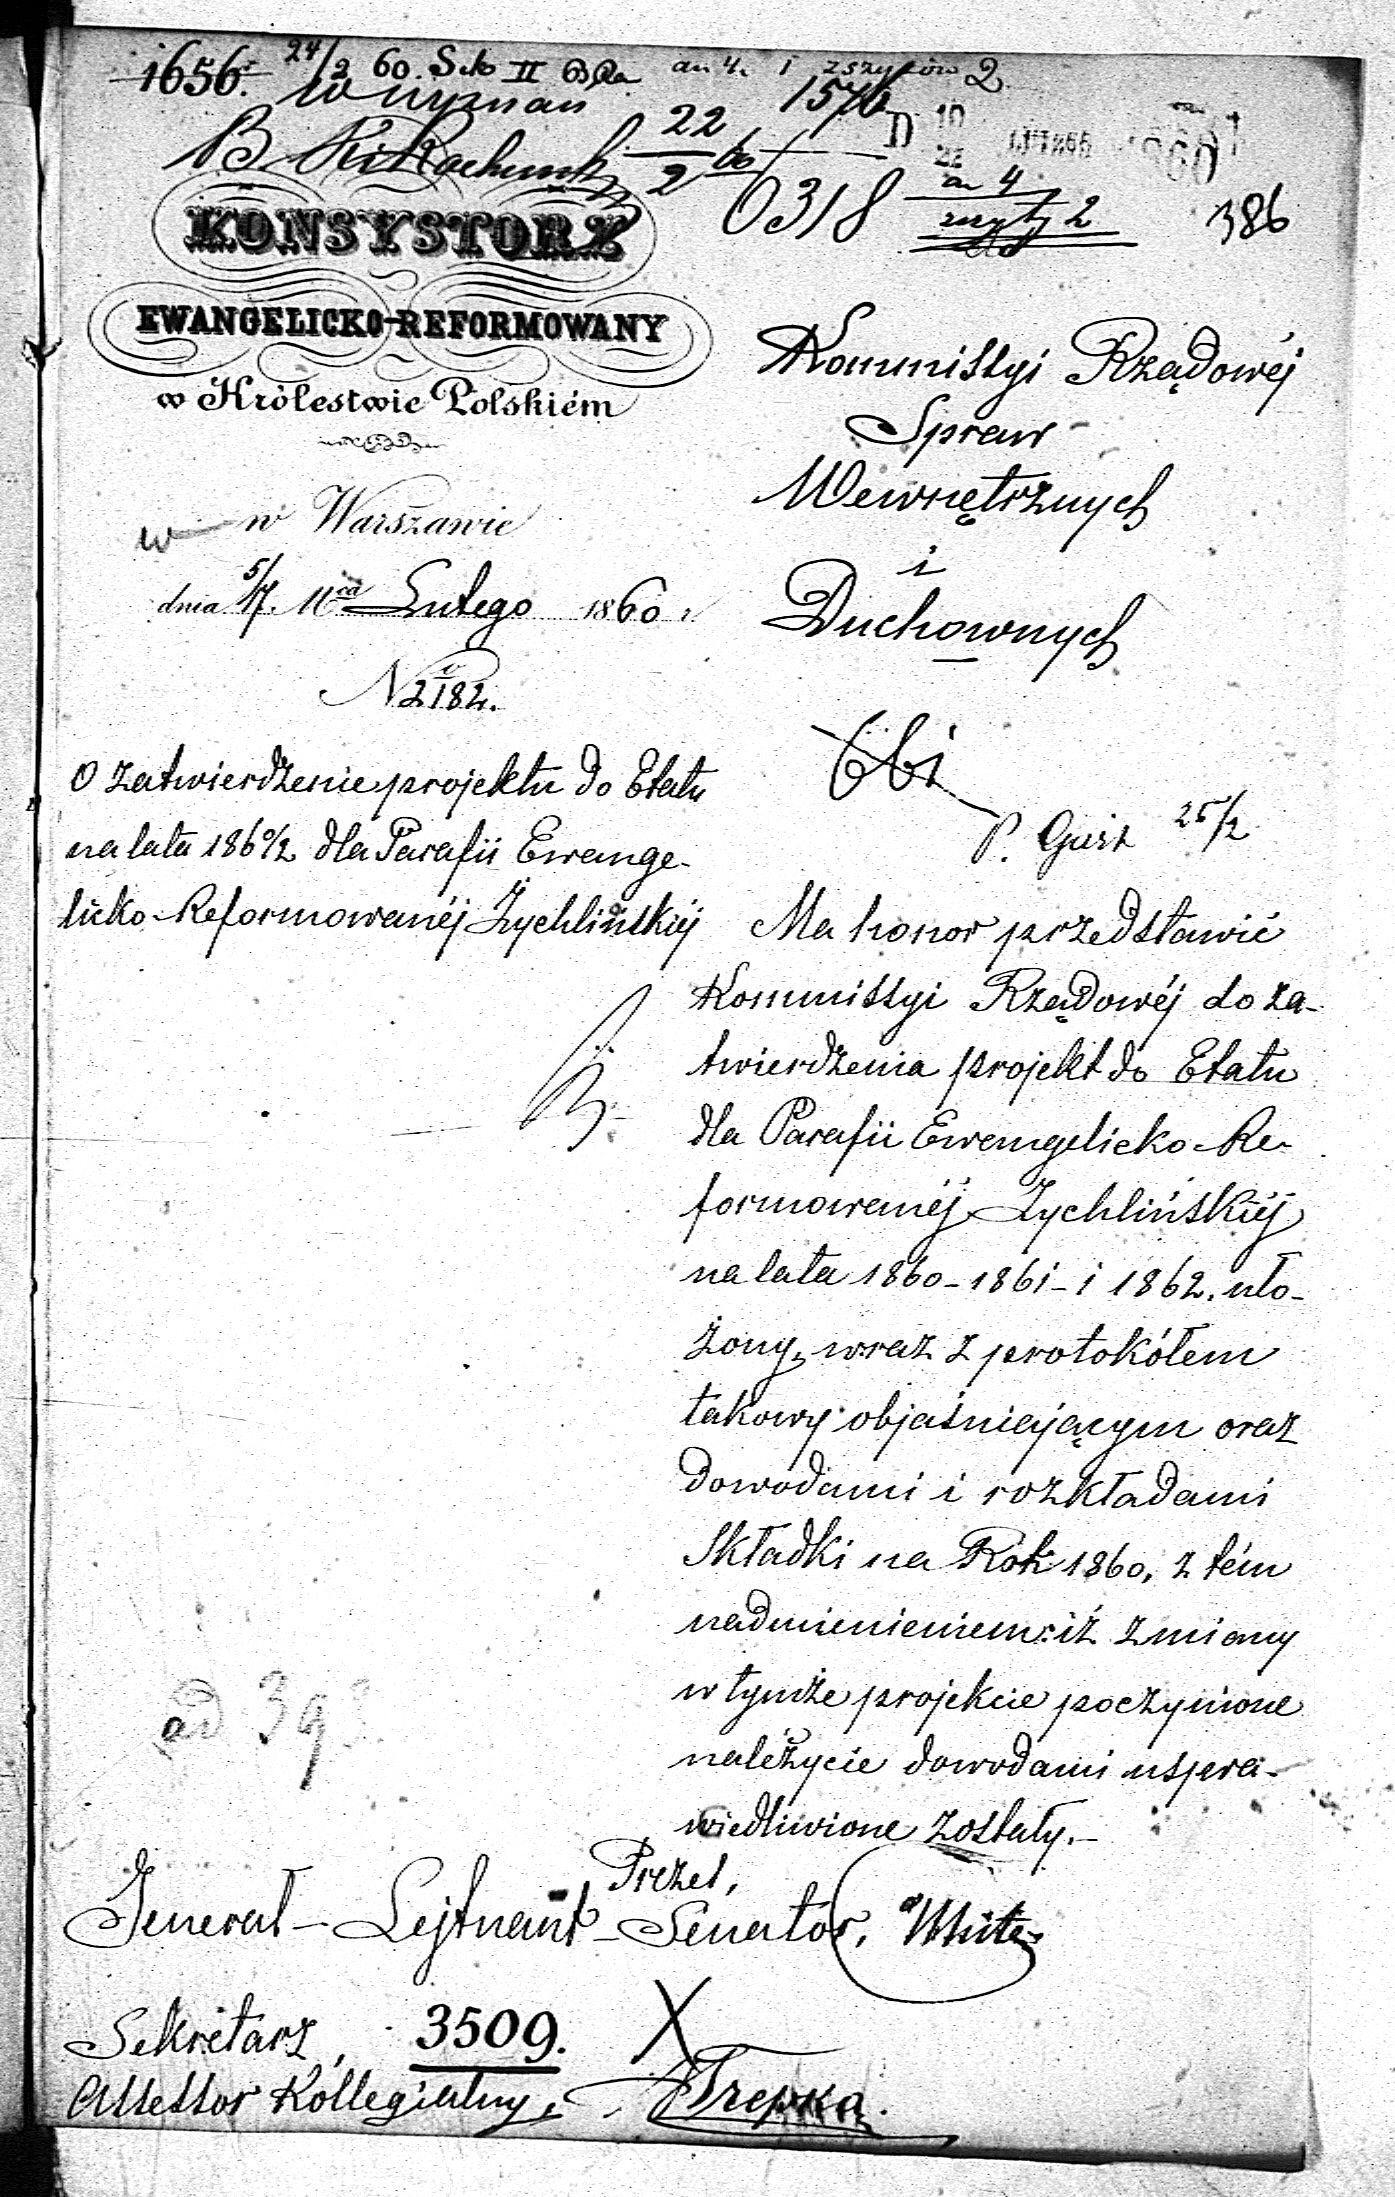 1656. 24/2 60. Sek II an 4. i zszytów 2
1576
22/2 60
D 10/22 LUTEGO 1860
0318 an 4
zszyty 2
386
KONSYSTORZ
EWANGELICKO-REFORMOWANY
w Królestwie Polskiém
w Warszawie
dnia 5/17. Mca Lutego 1860.
N 182.
O zatwierdzenie projektu do Etatu
na lata 1860/2 dla Parafii Ewange-
licko-Reformowanéj Żychlińskiéj
Kommissyi Rządowéj
Spraw
Wewnętrznych
i
Duchownych
P. 25/2
Ma honor przedstawić
Kommissyi Rządowéj do za-
twierdzenia projekt do Etatu
dla Parafii Ewangelicko-Re-
formowanéj Żychlińskiéj
na lata 1860-1861-i 1862. uło-
żony, wraz z protokółem
takowy objaśniającym oraz
dowodami i rozkładami
Składki na Rok 1860, z tém
nadmienieniem: iż zmiany
w tymże projekcie poczynione
należycie dowodami uspra-
wiedliwione zostały.-
Prezes,
Jenerał-Lejtnant-Senator, White
Sekretarz, 3509. X
Assessor Kollegialny, Trepka.
ad 393.